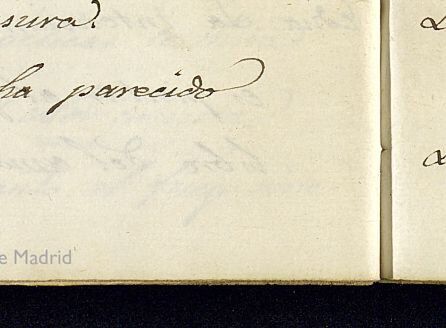 sura.
ha parecido
e Madrid